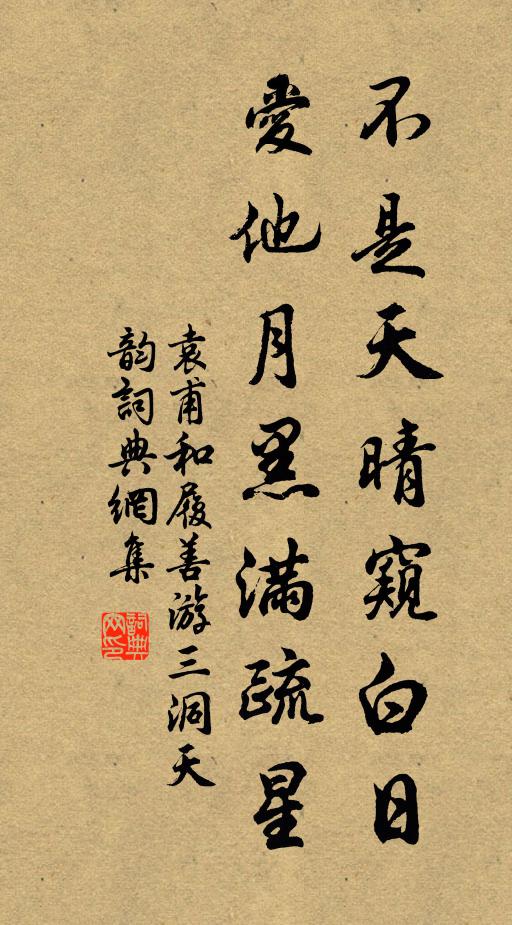 不是天晴窺白日
愛他月黑滿疏星
袁甫和履善游三洞天
韵詞典網集
詞典網印